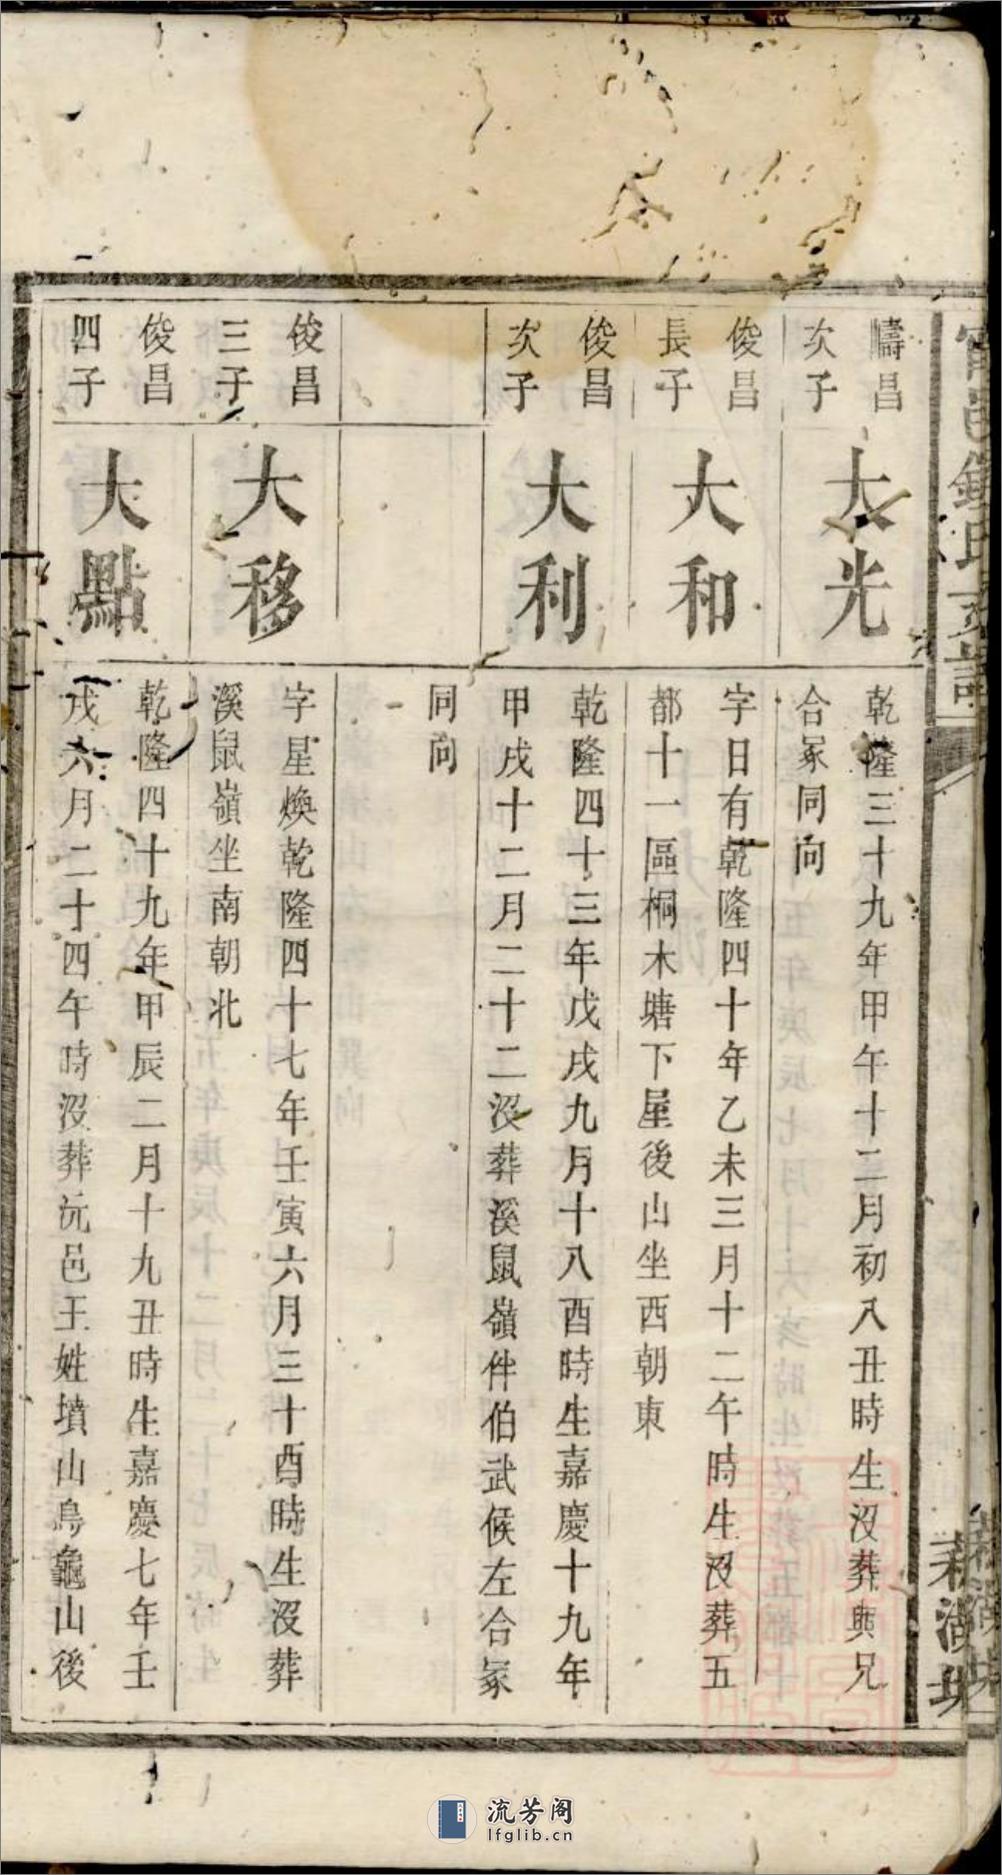 幬昌
次子
大光
乾隆三十九年甲午十二月初八丑時生沒葬與兄
合冢同向
俊昌
長子
大和
字日有乾隆四十年乙未三月十二午時生沒葬五
都十一區桐木塘下屋後山坐西朝東
俊昌
次子
大利
乾隆四十三年戊戌九月十八酉時生嘉慶十九年
甲戌十二月二十二沒葬溪鼠嶺伴伯武候左合冢
同向
俊昌
三子
大移
字星煥乾隆四十七年壬寅六月三十酉時生沒葬
溪鼠嶺坐南朝北
俊昌
四子
大點
乾隆四十九年甲辰二月十九丑時生嘉慶七年壬
戌六月二十四午時沒葬沅邑王姓墳山烏龜山後
流芳阁
lfglib.cn